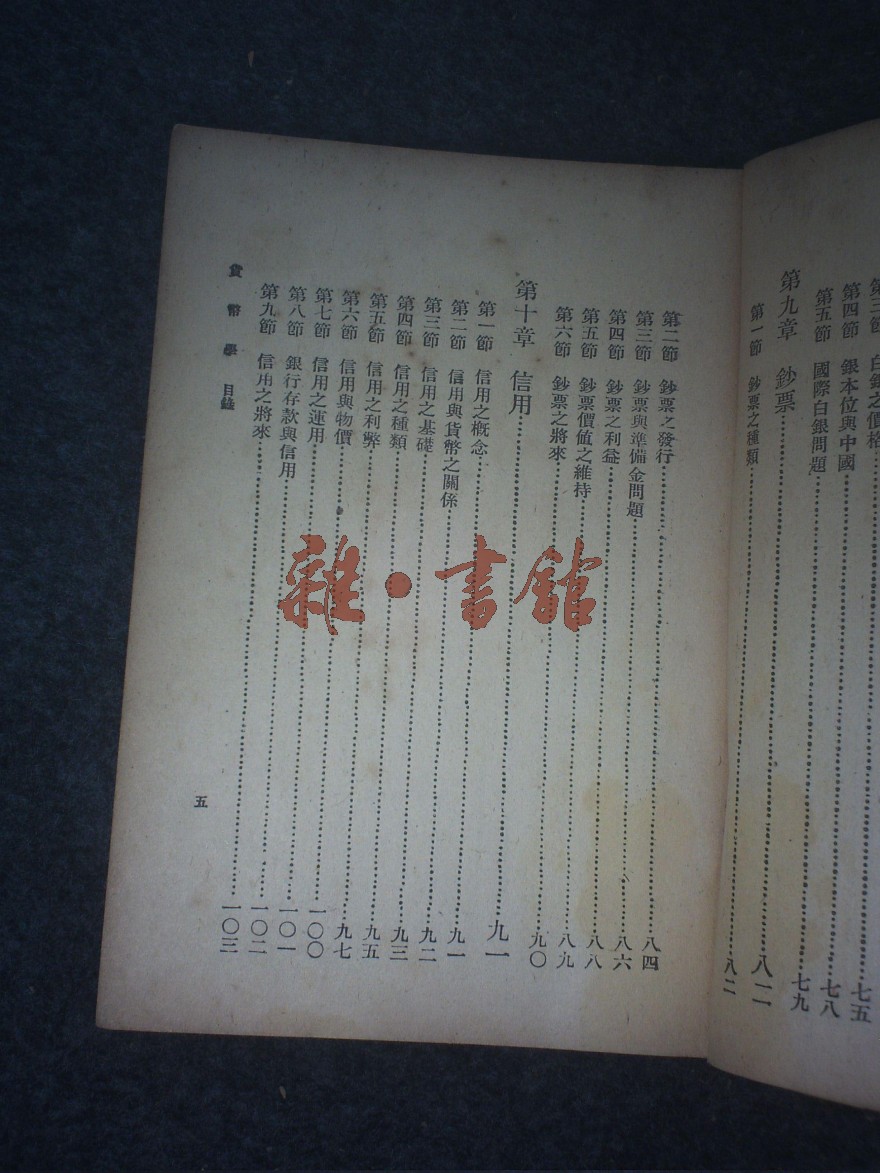 第三節 白銀之價格……七五
第四節 銀本位與中國……七八
第五節 國際白銀問題……七九
第九章 鈔票……八二
第一節 鈔票之種類……八二
第二節 鈔票之發行……八四
第三節 鈔票與準備金問題……八六
第四節 鈔票之利益……八八
第五節 鈔票價値之維持……八九
第六節 鈔票之將來……九〇
第十章 信用……九一
第一節 信用之概念……九一
第二節 信用與貨幣之關係……九二
第三節 信用之基礎……九三
第四節 信用之種類……九五
第五節 信用之利弊……九七
第六節 信用與物價……一〇〇
第七節 信用之運用……一〇一
第八節 銀行存款與信用……一〇二
第九節 信用之將來……一〇三
貨幣學 目錄
五
雜·書館